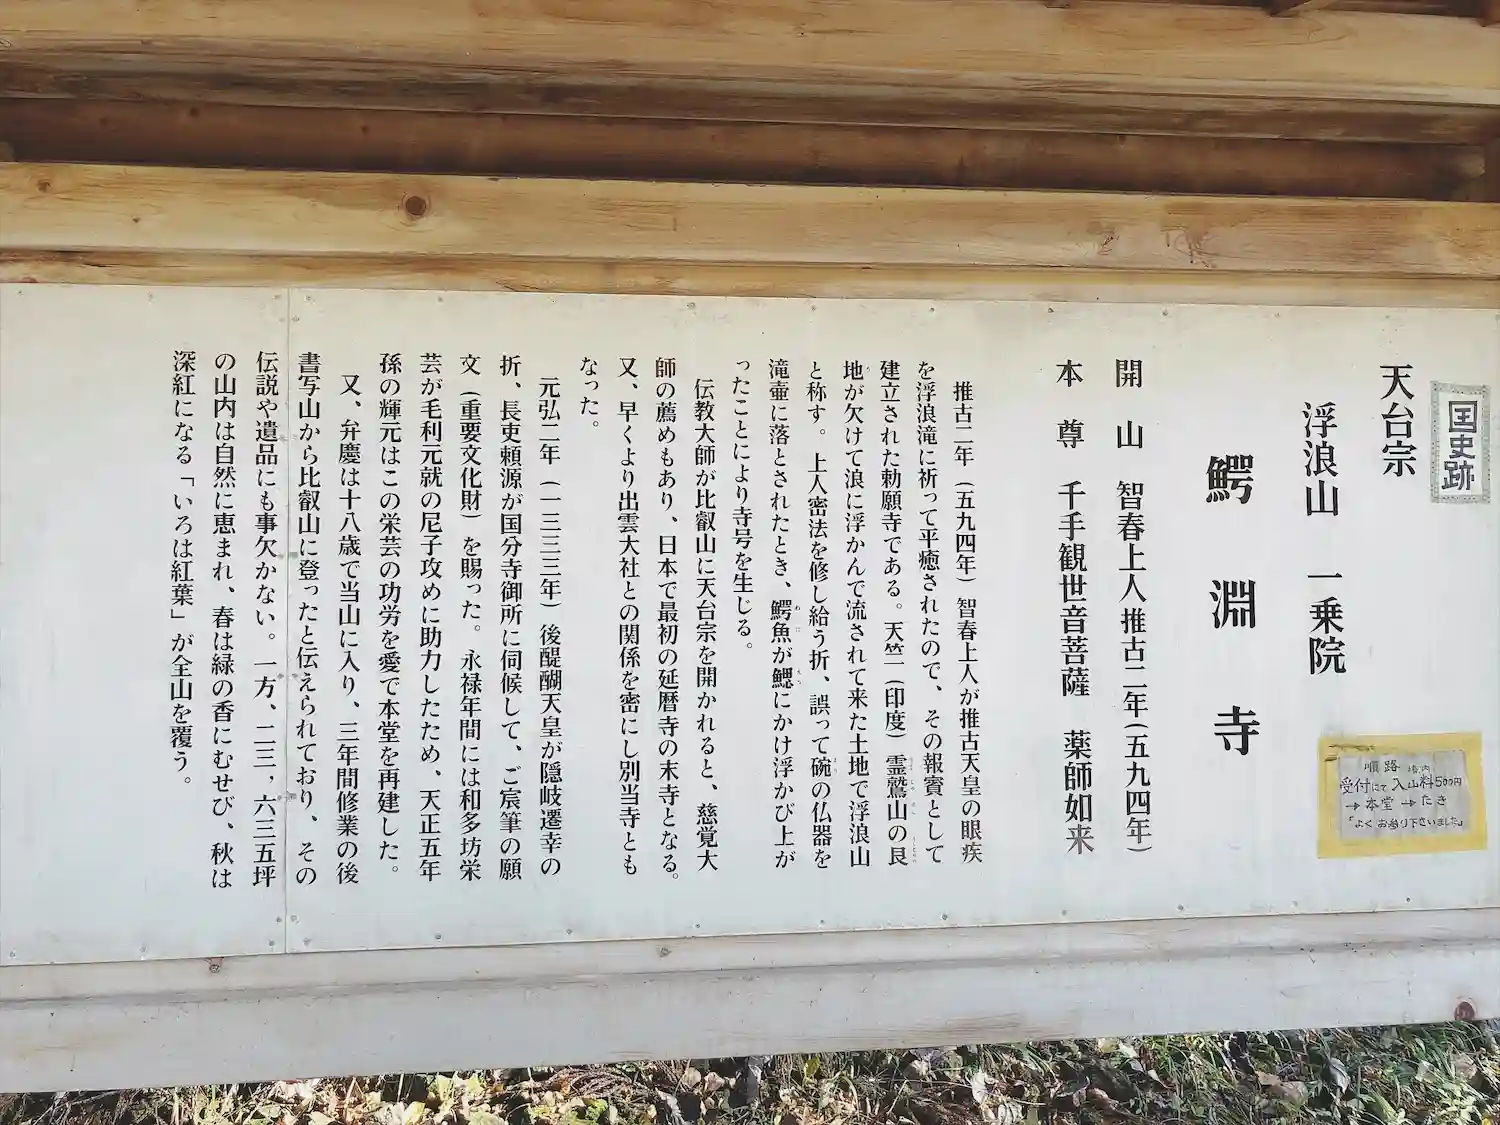 国史跡
天台宗
浮浪山　一乗院
鰐淵寺
開山　智春上人推古二年(五九四年)
本尊　千手観世音菩薩　薬師如来
推古二年（五九四年）智春上人が推古天皇の眼疾
を浮浪滝に祈って平癒されたので、その報賽として
建立された勅願寺である。天竺（印度）霊鷲山の艮
地が欠けて浪に浮かんで流されて来た土地で浮浪山
と称す。上人密法を修し給う折、誤って碗の仏器を
滝壷に落とされたとき、鰐魚が鰓にかけ浮かび上が
ったことにより寺号を生じる。
伝教大師が比叡山に天台宗を開かれると、慈覚大
師の薦めもあり、日本で最初の延暦寺の末寺となる。
又、早くより出雲大社との関係を密にし別当寺とも
なった。
元弘二年（一三三三年）後醍醐天皇が隠岐遷幸の
折、長吏頼源が国分寺御所に伺候して、ご宸筆の願
文（重要文化財）を賜った。永禄年間には和多坊栄
芸が毛利元就の尼子攻めに助力したため、天正五年
孫の輝元はこの栄芸の功労を愛で本堂を再建した。
又、弁慶は十八歳で当山に入り、三年間修業の後
書写山から比叡山に登ったと伝えられており、その
伝説や遺品にも事欠かない。一方、二三，六三五坪
の山内は自然に恵まれ、春は緑の香にむせび、秋は
深紅になる「いろは紅葉」が全山を覆う。
順路 境内
受付にて入山料500円
→本堂→たき
「よくお参り下さいました」